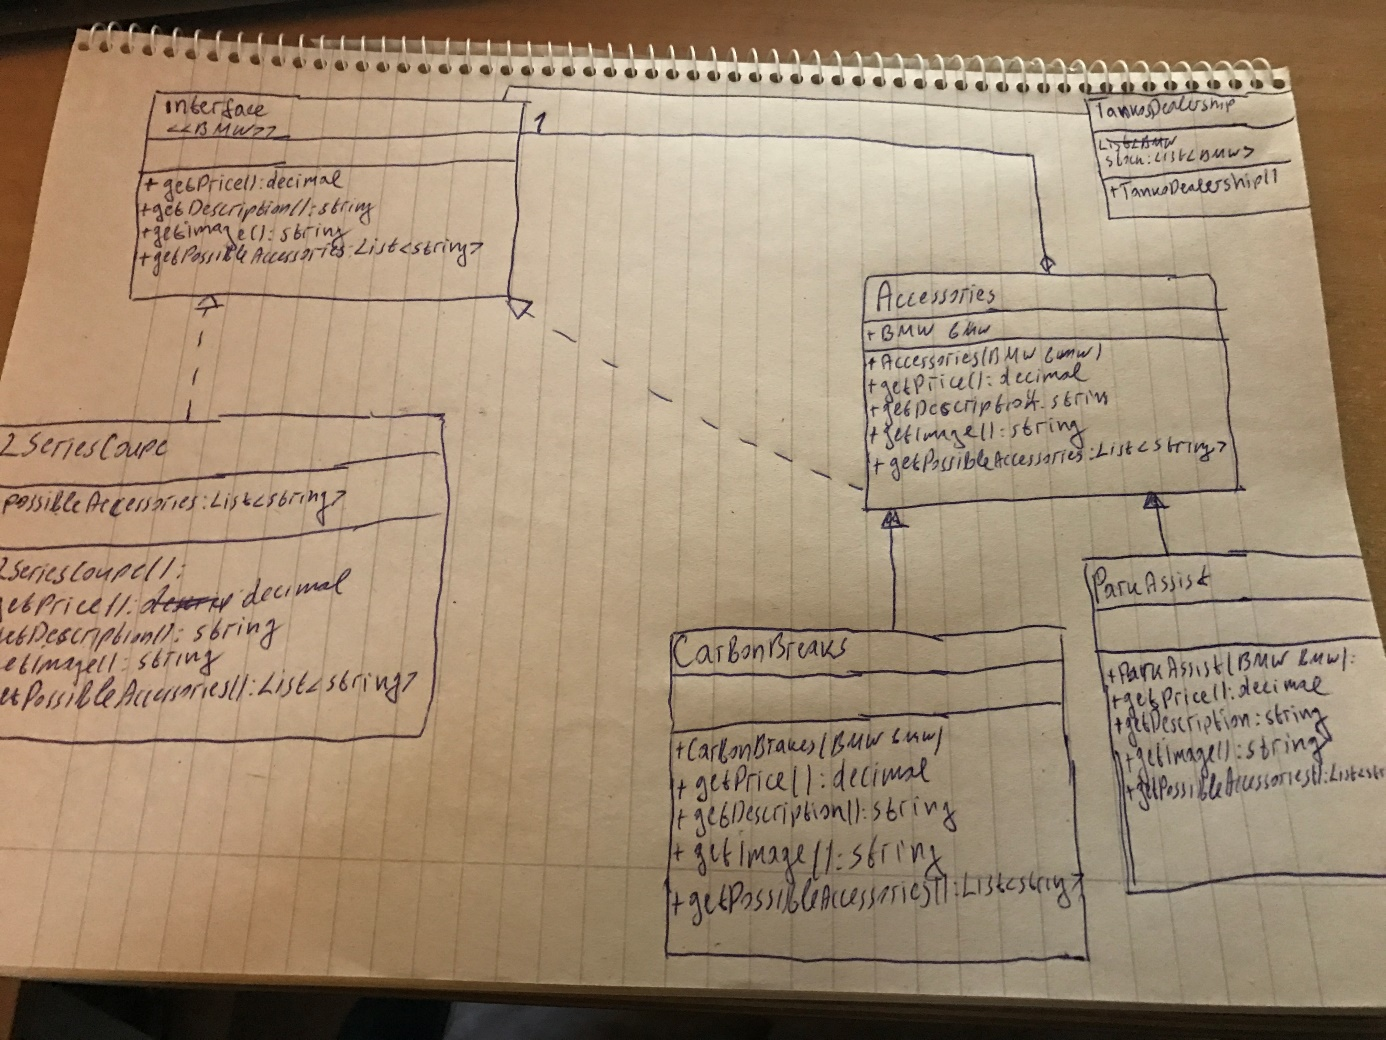 interface
<<BMW>>
+ getPrice(): decimal
+ getDescription(): string
+ getImage(): string
+ getPossibleAccessories: List<string>
1
TankosDealership
List<BMW
stock: List<BMW>
+TankosDealership()
Accessories
+ BMW bmw
+ Accessories(BMW bmw)
+ getPrice(): decimal
+ getDescription: strin
+ getImage(): string
+ getPossibleAccessories: List<string>
2SeriesCoupe
possibleAccessories: List<string>
2SeriesCoupe():
getPrice(): decimal
getDescription(): string
getImage(): string
getPossibleAccessories(): List<string>
CarbonBreaks
+CarbonBrakes(BMW bmw)
+ getPrice(): decimal
+ getDescription(): string
+ getImage(): string
+ getPossibleAccessories(): List<string>
ParkAssist
+ParkAssist(BMW bmw):
+getPrice(): decimal
+getDescription: string
+getImage(): string
+getPossibleAccessories(): List<str